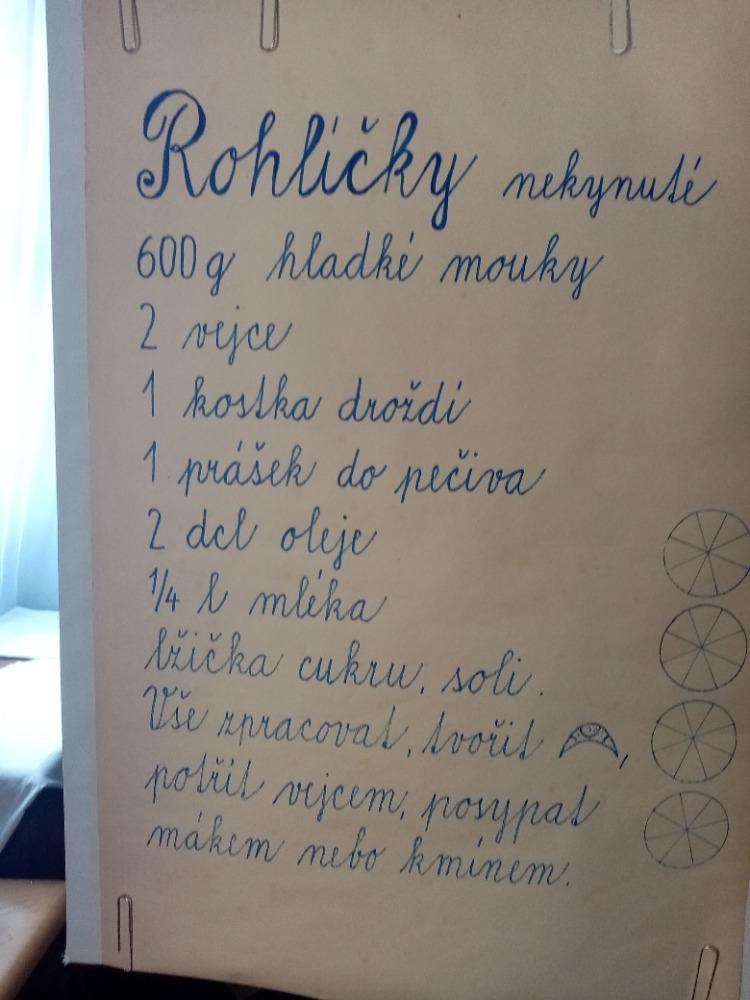 Rohlíčky nekynuté
600 g hladké mouky
2 vejce
1 kostka droždí
1 prášek do pečiva
2 dcl oleje
1/4 l mléka
lžička cukru, soli.
Vše zpracovat, tvořit ,
potřít vejcem, posypat
mákem nebo kmínem.